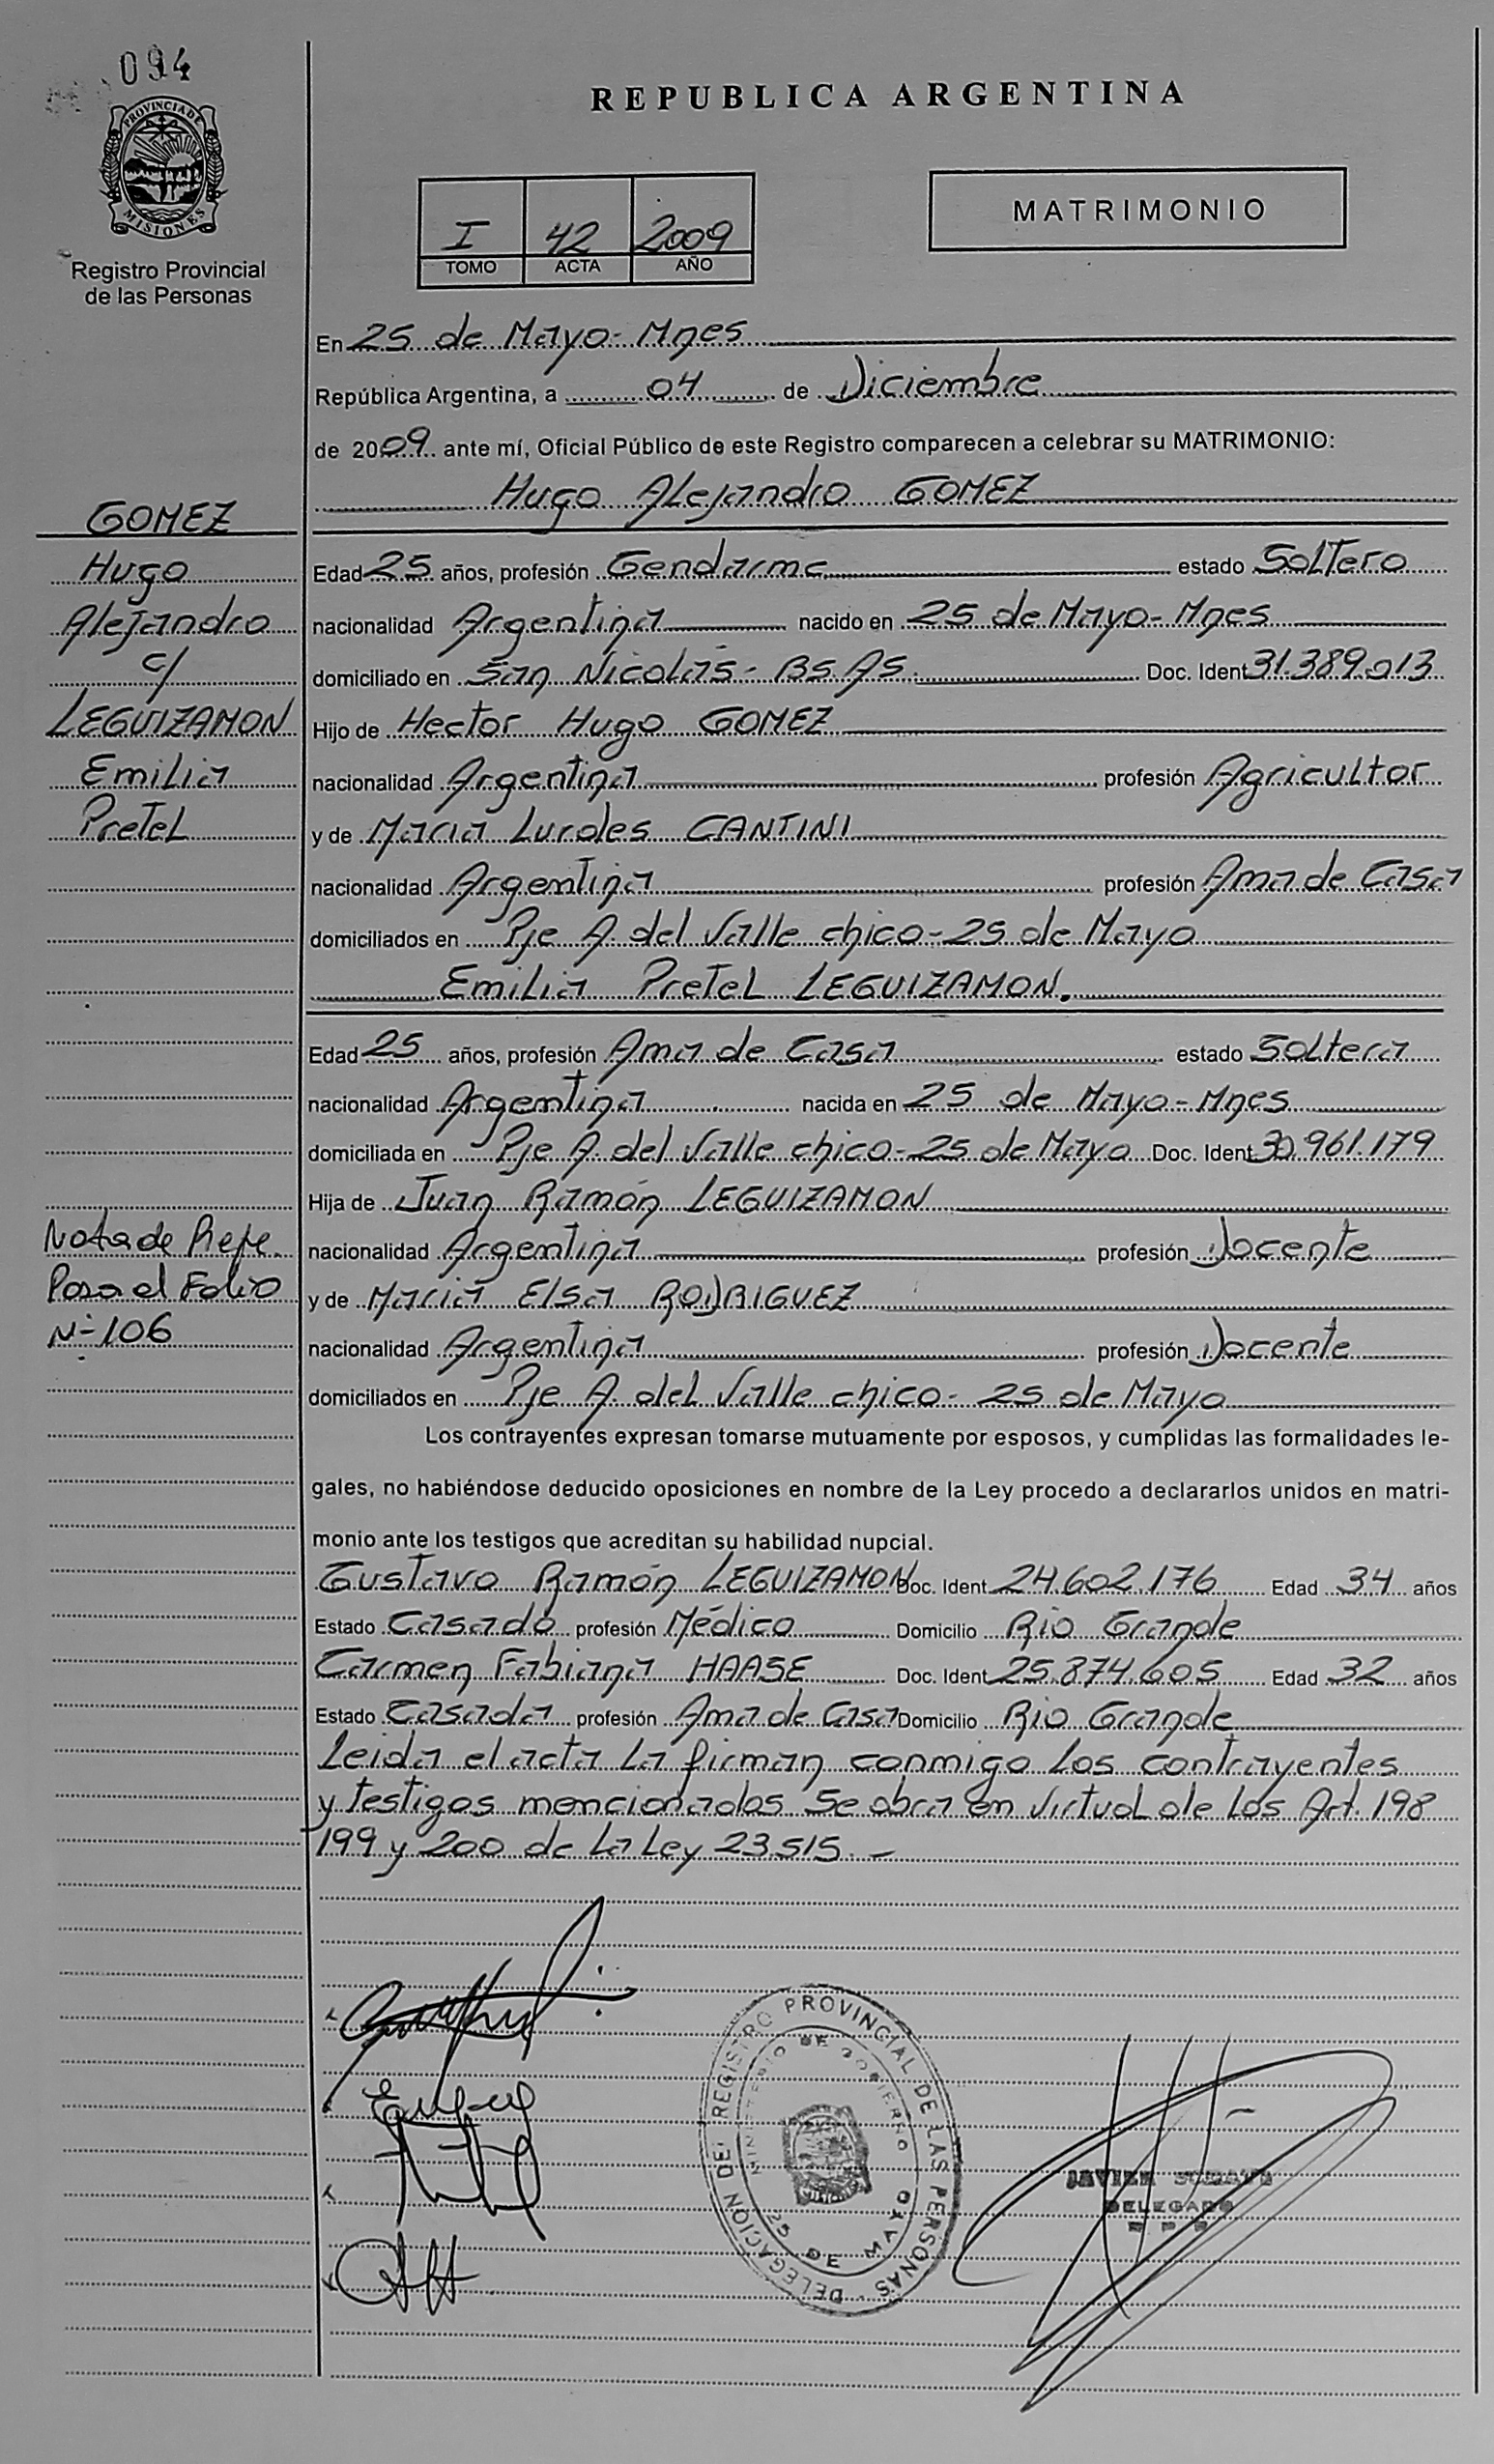 094
PROVINCIA DE
MISIONES
Registro Provincial
de las Personas
REPUBLICA ARGENTINA
I 42 2009
TOMO ACTA AÑO
MATRIMONIO
En 25 de Mayo-Mnes
República Argentina, a 04 de Diciembre
de 2009 ante mí, Oficial Público de este Registro comparecen a celebrar su MATRIMONIO:
Hugo Alejandro GOMEZ
GOMEZ
Hugo
Alejandro
c/
LEGUIZAMON
Emilia
Pretel
Edad 25 años, profesión Gendarme estado Soltero
nacionalidad Argentina nacido en 25 de Mayo-Mnes
domiciliado en San Nicolás-BS.AS. Doc. Ident 31.389.013
Hijo de Hector Hugo GOMEZ
nacionalidad Argentina profesión Agricultor
y de Maria Lurdes CANTINI
nacionalidad Argentina profesión Ama de Casa
domiciliados en Pje A. del Valle chico-25 de Mayo
Emilia Pretel LEGUIZAMON.
Edad 25 años, profesión Ama de Casa estado Soltera
nacionalidad Argentina nacida en 25 de Mayo-Mnes
domiciliada en Pje A. del Valle chico-25 de Mayo Doc. Ident 30.961.179
Hija de Juan Ramón LEGUIZAMON
nacionalidad Argentina profesión Docente
y de Maria Elsa RODRIGUEZ
nacionalidad Argentina profesión Docente
domiciliados en Pje A. del Valle chico-25 de Mayo
Nota de Refe.
Pasa al Folio
N-106
Los contrayentes expresan tomarse mutuamente por esposos, y cumplidas las formalidades le-
gales, no habiéndose deducido oposiciones en nombre de la Ley procedo a declararlos unidos en matri-
monio ante los testigos que acreditan su habilidad nupcial.
Gustavo Ramón LEGUIZAMON Doc. Ident 24.602.176 Edad 34 años
Estado Casado profesión Médico Domicilio Rio Grande
Carmen Fabiana HAASE Doc. Ident 25.874.605 Edad 32 años
Estado Casada profesión Ama de Casa Domicilio Rio Grande
Leida el acta la firman conmigo los contrayentes
y testigos mencionados Se obra en virtual de los Art. 198
199 y 200 de la Ley 23.515.-
DELEGACION DEL REGISTRO PROVINCIAL DE LAS PERSONAS
MINISTERIO DE GOBIERNO
25 DE MAYO
JAVIER
DELEGADO